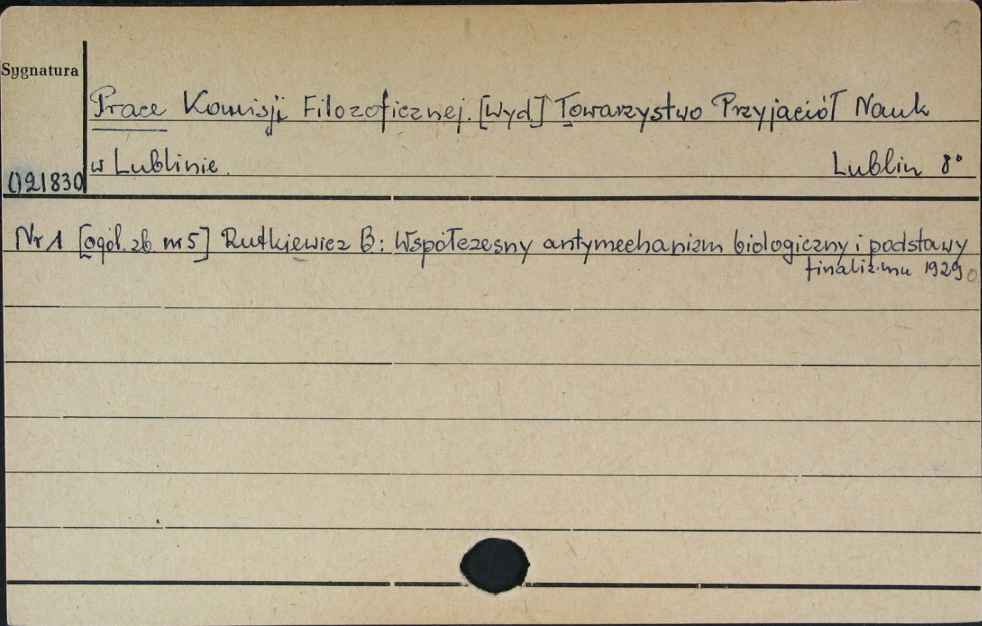 Sygnatura
Prace Komisji Filozoficznej. [Wyd.] Towarzystwo Przyjaciół Nauk
w Lublinie. Lublin 8°
021830
Nr 1 [ogól. zb. nr 5] Rutkiewicz B: Współczesny antymechanizm biologiczny i podstawy
finalizmu 1929